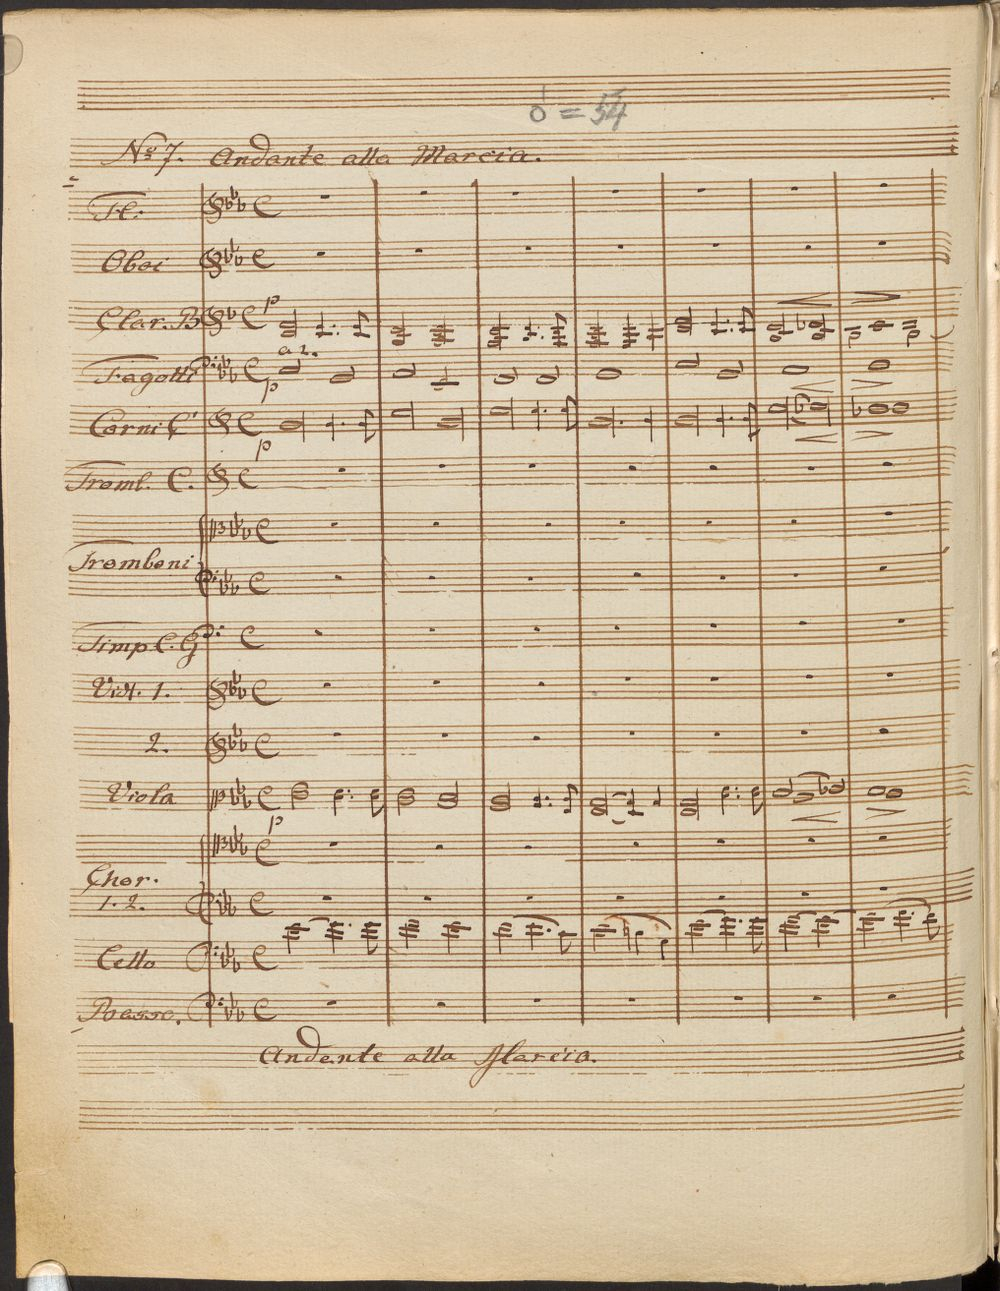 = 54
No 7. Andante alla Marcia.
Fl:
Oboi
p
Clar. B
a 2.
Fagotti
p
Corni C
p
Tromb. C.
Tromboni
Timp C. G
Viol. 1.
2.
Viola
p
Chor.
1. 2.
Cello
Basso.
Andante alla Marcia.